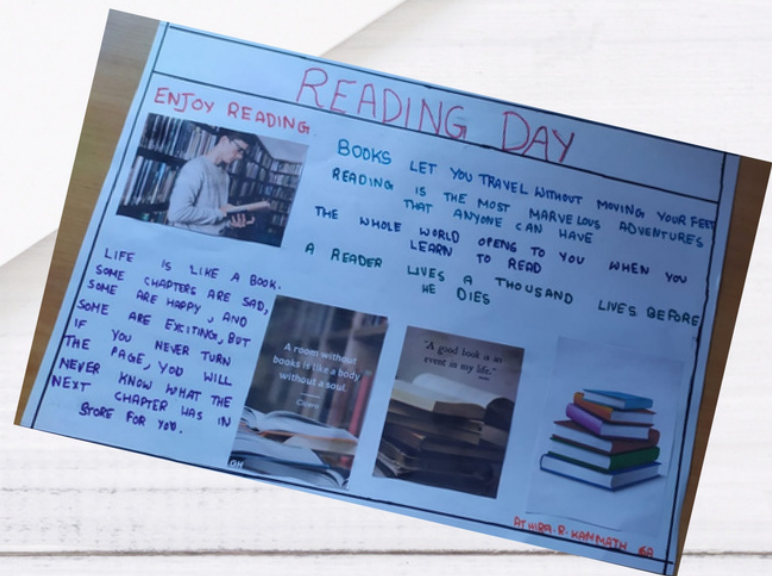 READING DAY
ENJOY READING
BOOKS LET YOU TRAVEL WITHOUT MOVING YOUR FEET
READING IS THE MOST MARVELOUS ADVENTURES
THAT ANYONE CAN HAVE
THE WHOLE WORLD OPENS TO YOU WHEN YOU
LEARN TO READ
A READER LIVES A THOUSAND LIVES BEFORE
HE DIES
LIFE IS LIKE A BOOK.
SOME CHAPTERS ARE SAD,
SOME ARE HAPPY, AND
SOME ARE EXCITING, BUT
IF YOU NEVER TURN
THE PAGE, YOU WILL
NEVER KNOW WHAT THE
NEXT CHAPTER HAS IN
STORE FOR YOU.
A room without
books is like a body
without a soul.
Cicero
GH
"A good book is an
event in my life."
ATHIRA.R.KANMATH 6A